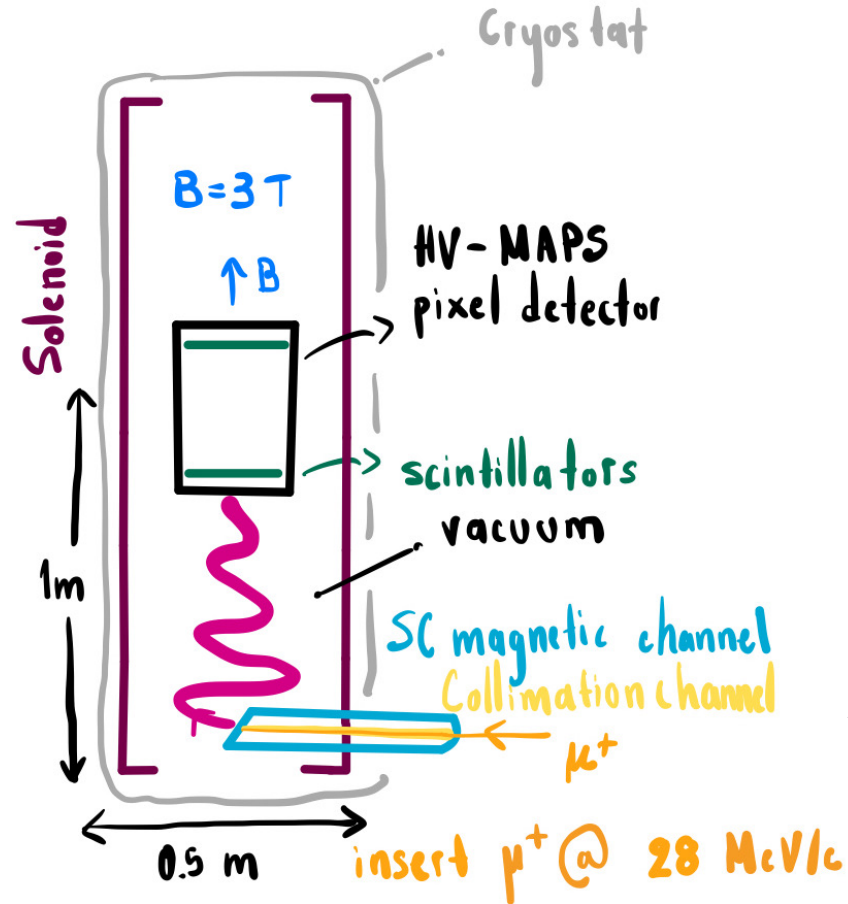 Cryostat
B=3T
↑B
Solenoid
HV-MAPS
pixel detector
scintillators
vacuum
1m
SC magnetic channel
Collimation channel
μ+
0.5 m
insert μ+ @ 28 MeV/c